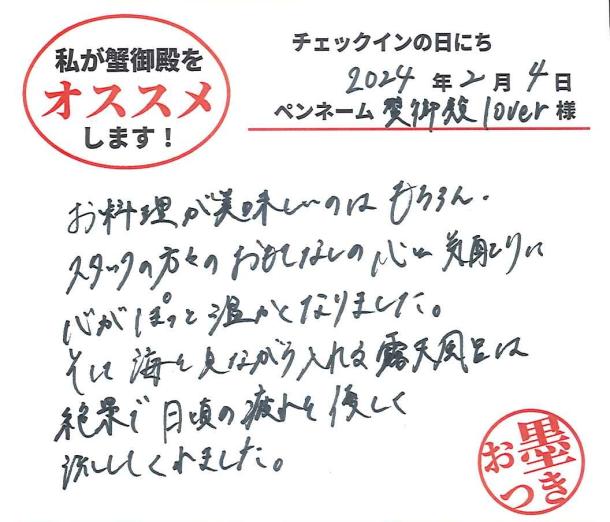 私が蟹御殿を
オススメ
します！
チェックインの日にち
2024年2月4日
ペンネーム 蟹御殿lover 様
お料理が美味しいのはもちろん、
スタッフの方々のおもてなしの心と気配りに
心がぽっと温かくなりました。
そして海を見ながら入れる露天風呂は
絶景で日頃の疲れを優しく
流してくれました。
お墨つき